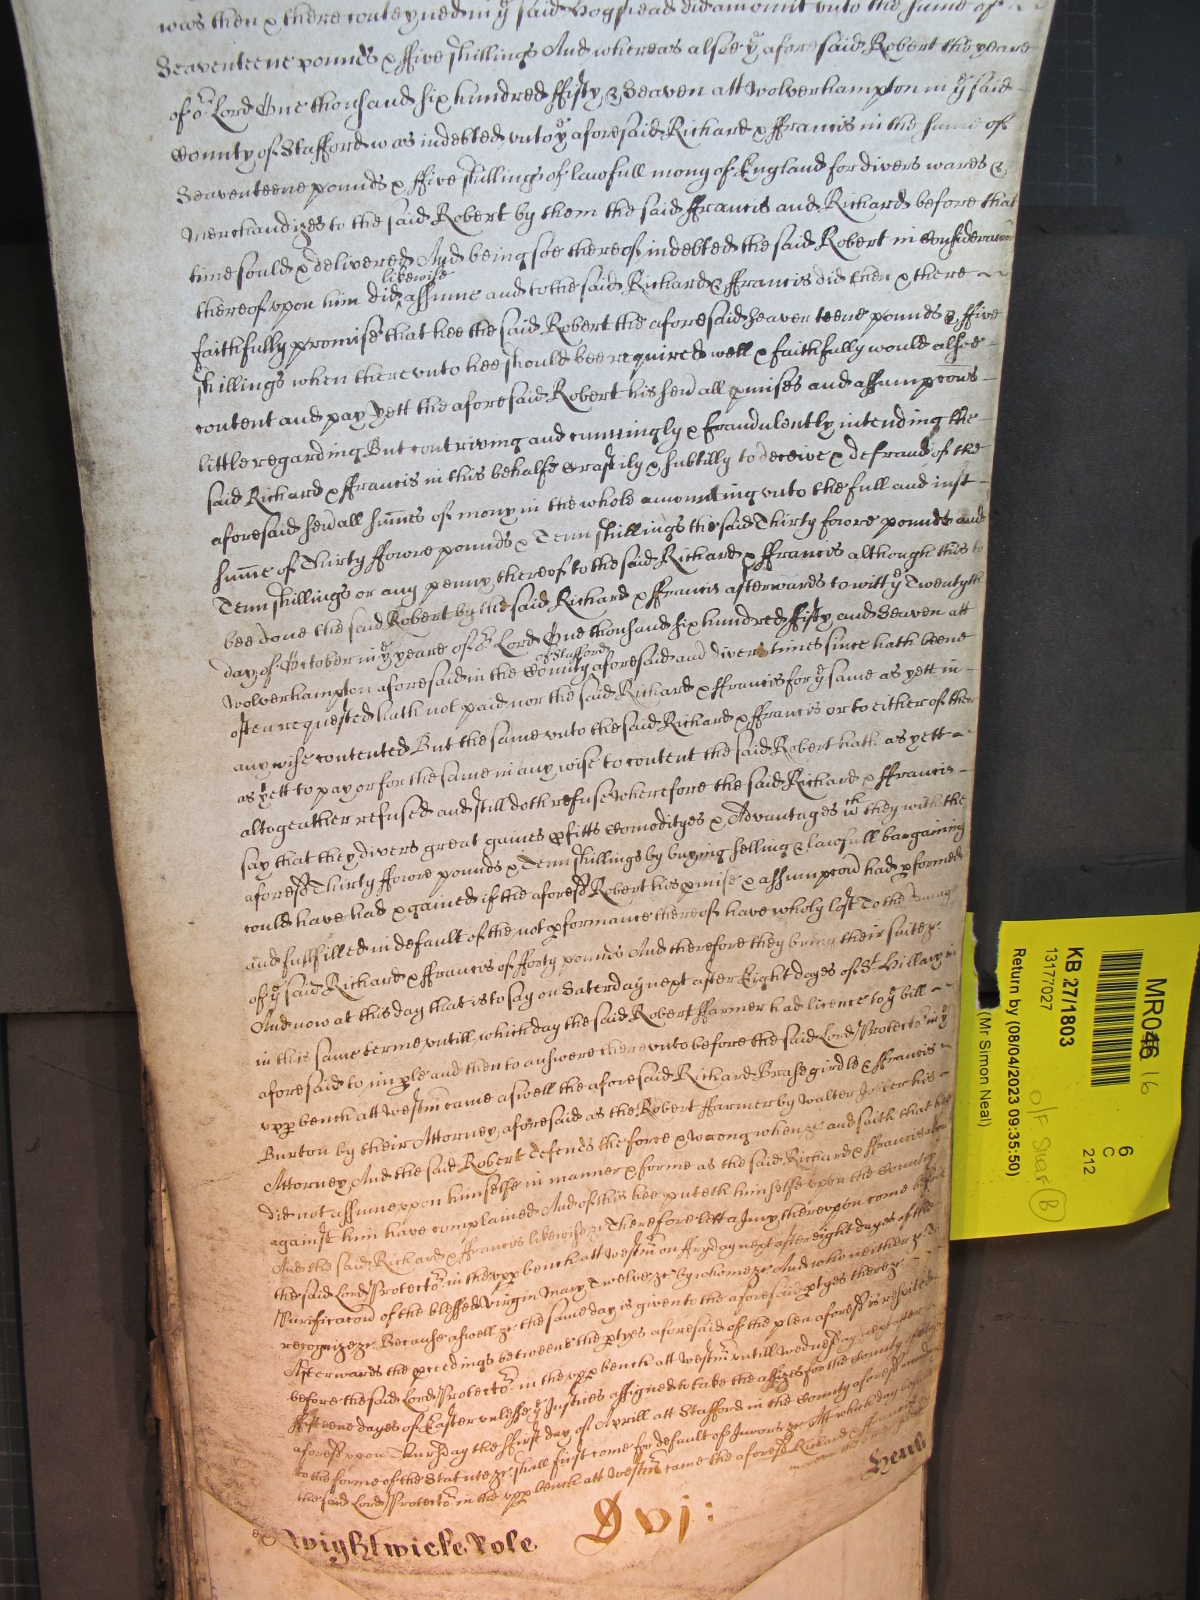 was then & there conteyned in ye said Hogshead did amount unto the sume of
Seaventeene pounds & ffive shillings And whereas alsoe ye aforesaid Robert the yeare
of or Lord One thousand six hundred ffifty & Seaven att Wolverhampton in ye said
County of Stafford was indebted unto ye aforesaid Richard & ffrancis in the sume of
Seaventeene pounds & ffive shillings of lawfull mony of England for divers wares &
Merchandizes to the said Robert by them the said ffrancis and Richard before that
time sould & delivered And being soe thereof indebted the said Robert in Consideracon
likewise
thereof upon him did assume and to the said Richard & ffrancis did then & there
faithfully promise that hee the said Robert the aforesaid Seaventeene pounds & ffive
shillings when thereunto hee should bee required well & faithfully would alsoe
content and pay Yett the aforesaid Robert his sevall pmises and assumpcons
little regarding But contriving and cunningly & fraudulently intending the
said Richard & ffrancis in this behalfe craftily & subtilly to deceive & defraud of the
aforesaid sevall sumes of mony in the whole amounting unto the full and inst
sume of Thirty ffowre pounds & Tenn shillings the said Thirty fowre pounds and
Tenn shillings or any penny thereof to the said Richard & ffrancis although this to
bee done the said Robert by the said Richard & ffrancis afterwards to witt ye Twentyth
day of October in ye yeare of or Lord One thousand six hundred ffifty and Seaven att
of Stafford
Wolverhampton aforesaid in the County aforesaid and divers times since hath beene
often requested hath not paid nor the said Richard & ffrancis for ye same as yett in
any wise contented But the same unto the said Richard & ffrancis or to either of them
as yett to pay or for the same in any wise to content the said Robert hath as yett
altogeather refused and still doth refuse Wherefore the said Richard & ffrancis
say that they divers great gaines pfitts Comodityes & Advantages wch they with the
aforesd Thirty ffowre pounds & Tenn shillings by buying selling & lawfull bargaining
could have had & gained if the aforesd Robert his pmise & assumpcon had pformed
and fullfilled in default of the not pformance thereof have wholy lost To the damage
of ye said Richard & ffrancis of fforty pounds And therefore they bring their suite &c
And now at this day that is to say on Saterday next after Eight dayes of St Hillary in
in this same terme untill which day the said Robert ffarmer had licence to ye bill
aforesaid to imple and then to answere thereunto before the said Lord Protector in ye
upp bench att Westm came aswell the aforesaid Richard Brasegirdle & ffrancis
Burton by their Attorney aforesaid as the Robert ffarmer by Walter his
Attorney And the said Robert Defends the force & wrong when &c and saith that hee
did not assume upon himselfe in manner & forme as the said Richard & ffrancis above
against him have complained And of this hee putteth himselfe upon the Country
And the said Richard & ffrancis likewise &c Therefore lett a Jury thereupon come before
the said Lord Protector in the upp bench att Westm on ffryday next after eight dayes of the
Purificacon of the blessed Virgin Mary Twelve &c by whome &c And who neither &c To
recognize &c Because aswell &c the same day is given to the aforesaid ptyes there &c
Afterwards the pceedings betweene the ptyes aforesaid of the plea aforesd is respited
before the said Lord Protector in the upp bench att Westm untill Wednesday next after
ffifteene dayes of Easter unlesse ye Justices assigned to take the assizes for the County
aforesd upon Thursday the ffirst day of Aprill att Stafford in the County aforesd
to the forme of the Statute &c shall first come for default of Jurors &c Att which day before
the said Lord Protector in the upp bench att Westm came the aforesd Richard & ffrancis
Wightwicke Role
Dvj:
MR046 16
O/F Shelf B
6
C
212
KB 27/1803
13177027
Return by (08/04/2023 09:35:50)
(Mr Simon Neal)